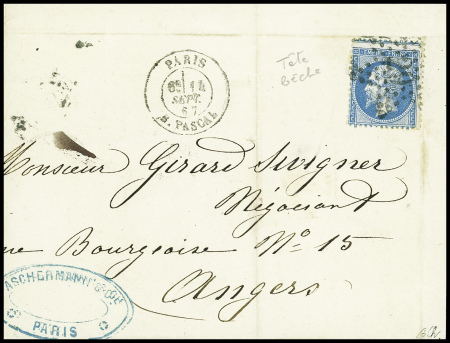 PARIS
6E 11
SEPT.
67
B. PASCAL
Tête
Bêche
Monsieur Girard Suvigner
Négociant
Rue Bourgeoise No. 15
Angers
ASCHERMANN & CIE
PARIS